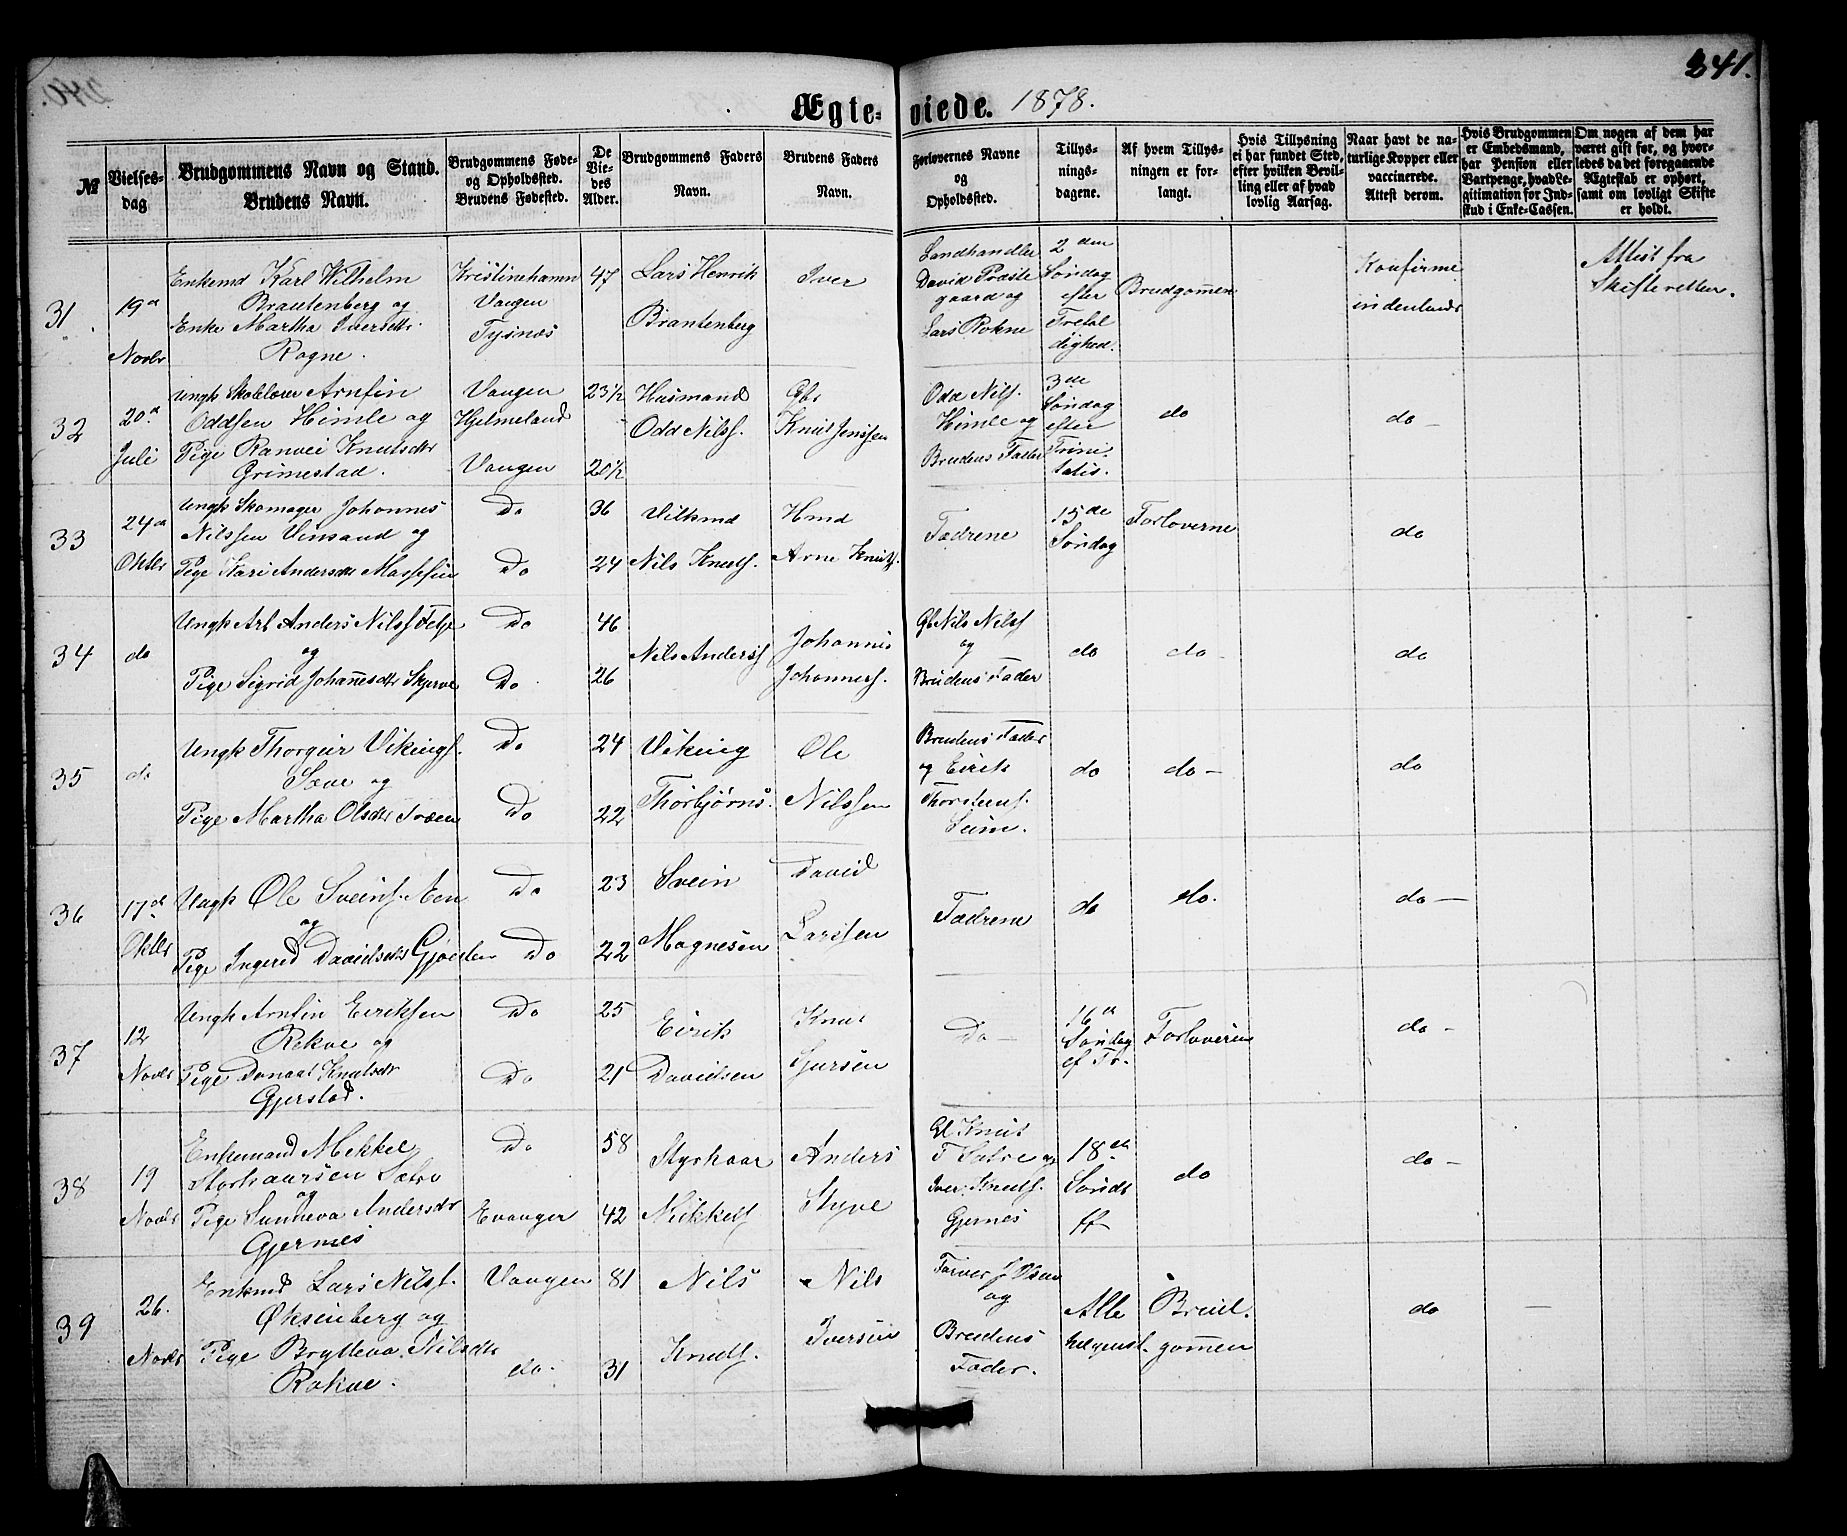 241.
Ægteviede. 1878.
№
Vielsesdag
Brudgommens Navn og Stand.
Brudens Navn.
Brudgommens Føde-
og Opholdssted.
Brudens Fødested.
De
Vie-
des
Alder.
Brudgommens Faders
Navn.
Brudens Faders
Navn.
Forlovernes Navne
og
Opholdssted.
Tillys-
nings-
dagene.
Af hvem Tillys-
ningen er for-
langt.
Hvis Tillysning
ei har fundet Sted,
efter hvilken Bevil-
ling eller af hvad
lovlig Aarsag.
Naar havt de na-
turlige Kopper eller
vaccinerede.
Attest derom.
Hvis Brudgommen
er Embedsmand,
har Pension eller
Vartpenge, hvad Le-
gitimation for Ind-
skud i Enke-Cassen.
Om nogen af dem har
været gift før, og hvor-
ledes da det foregaaende
Ægteskab er ophørt,
samt om lovligt Skifte
er holdt.
31.
19de
Novbr
Enkemd Karl Wilhelm
Brantenberg og
Enke Martha Iversdtr.
Rogne.
Kristinehamn
Vangen
Tysnæs
47
Lars Henrik
Brantenberg
Iver
Landhandler
David Præste
gaard og
Lars Rokne
2den
Søndag
efter
Trefol
dighed.
Brudgommen
Konfirme
indenlands
Attest fra
Skifteretten.
32
20de
Juli
Ungk Skolelærer Arnfin
Oddsen Himle og
Pige Ranvei Knutsdtr
Grimestad.
Vangen
Hjelmeland
Vangen
23½
20½
Husmand
Odd Nilsf.
Gbr
Knut Jonssen
Odd Nilsf.
Himle og
Brudens Fader
3de
Søndag
efter
Trini-
tatis.
do
do
33
24de
Oktbr
Ungk Skomager Johannes
Nilssen Vinsand og
Pige Kari Andersdtr
Do
Do
36
24
Nils Knutsf.
Hmd
Arne Knutsf.
Fædrene
15de
Søndag
Forloverne
do
34
do
Ungk Arb Anders Nilsf
og
Pige Sigrid Johannesdtr Skjerve
Do
Do
46
26
Nils Andersf
Johannes
Johannesf.
Gb Nils Nilsf
og
Brudens Fader
do
do
do
35
do
Ungk Thorgeir Vikingsf.
Sæve og
Pige Martha Olsdtr
Do
Do
24
22
Viking
Thorbjørns.
Ole
Nilssen
Brudens Fader
og Eirik
Thorsteinsf.
Seim.
do
do
do
36
17de
Oktbr
Ungk Ole Sveinsf.
og
Pige Ingerid Davidsdtr
Do
Do
23
22
Svein
Magnesen
David
Larssen
Fædrene
do
do.
do
37
12
Novbr
Ungk Arnfin Eiriksen
Rekve og
Pige Knutsdtr
Gjerstad.
Do
Do
25
21
Eirik
Davidsen
Knut
Do
16de
Søndag
ef Tr.
Forloveren
do
38
19
Novbr
Enkemand Mikkel
Styrkaarsen
og
Pige Sunneva Andersdtr
Gjernes
Do
Evanger
58
42
Styrkaar
Mikkelsf
Anders
Styve
Knut
og
Iver Knutsf.
Gjernes
18de
Sønd
do
do
39
26.
Novbr
Enkmd Lars Nilsf.
Øksenberg og
Pige Brytteva Nilsdtr
Rokne.
Vangen
do.
81
31
Nils
Knutsf.
Nils
Iversen
og
Brudens
Fader.
Alle
helgensd.
Brud-
gommen
do